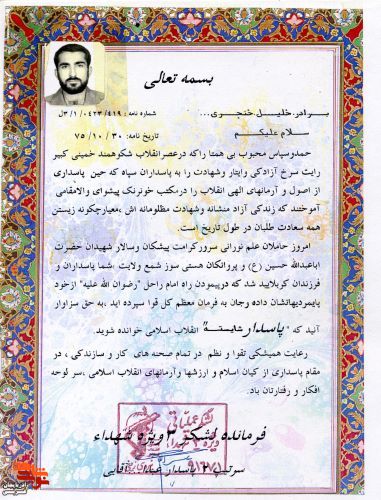 بسمه تعالی
برادر خلیل خنجری...
شماره نامه : ۴۱۹/۰۴۲۳/ ۱/ ۳ل
سلام علیکم
تاریخ نامه: ۳۰ / ۱۰ / ۷۵
حمدوسپاس محبوب بی همتا راکه درعصرانقلاب شکوهمند خمینی کبیر
رایت سرخ آزادگی وایثار وشهادت را به پاسداران سپاه که حین پاسداری
از اصول و آرمانهای الهی انقلاب را درمکتب خونرنگ پیشوای والامقامی
آموختند که زندگی آزاد منشانه وشهادت مظلومانه اش ،معیارچگونه زیستن
همه سعادت طلبان در طول تاریخ است.
امروز حاملان علم نورانی سرورکرامت پیشگان وسالار شهیدان حضرت
اباعبدالله حسین (ع) و پروانگان هستی سوز شمع ولایت ،شما پاسداران و
فرزندان کربلایید شما که درپیمودن راه امام راحل "رضوان الله علیه "ازخود
پایمردیهانشان داده وجان به فرمان معظم کل قوا سپرده اید ،به حق سزاوار
آنید که " پاسدار نمونه " انقلاب اسلامی خوانده شوید.
رعایت همیشگی تقوا و نظم در تمام صحنه های کار و سازندگی ، در
مقام پاسداری از کیان اسلام و ارزشها وآرمانهای انقلاب اسلامی ،سر لوحه
افکار و رفتارتان باد.
فرمانده لشکر ۳ ویژه شهداء
سرتیپ ۲ پاسدار
آقایی